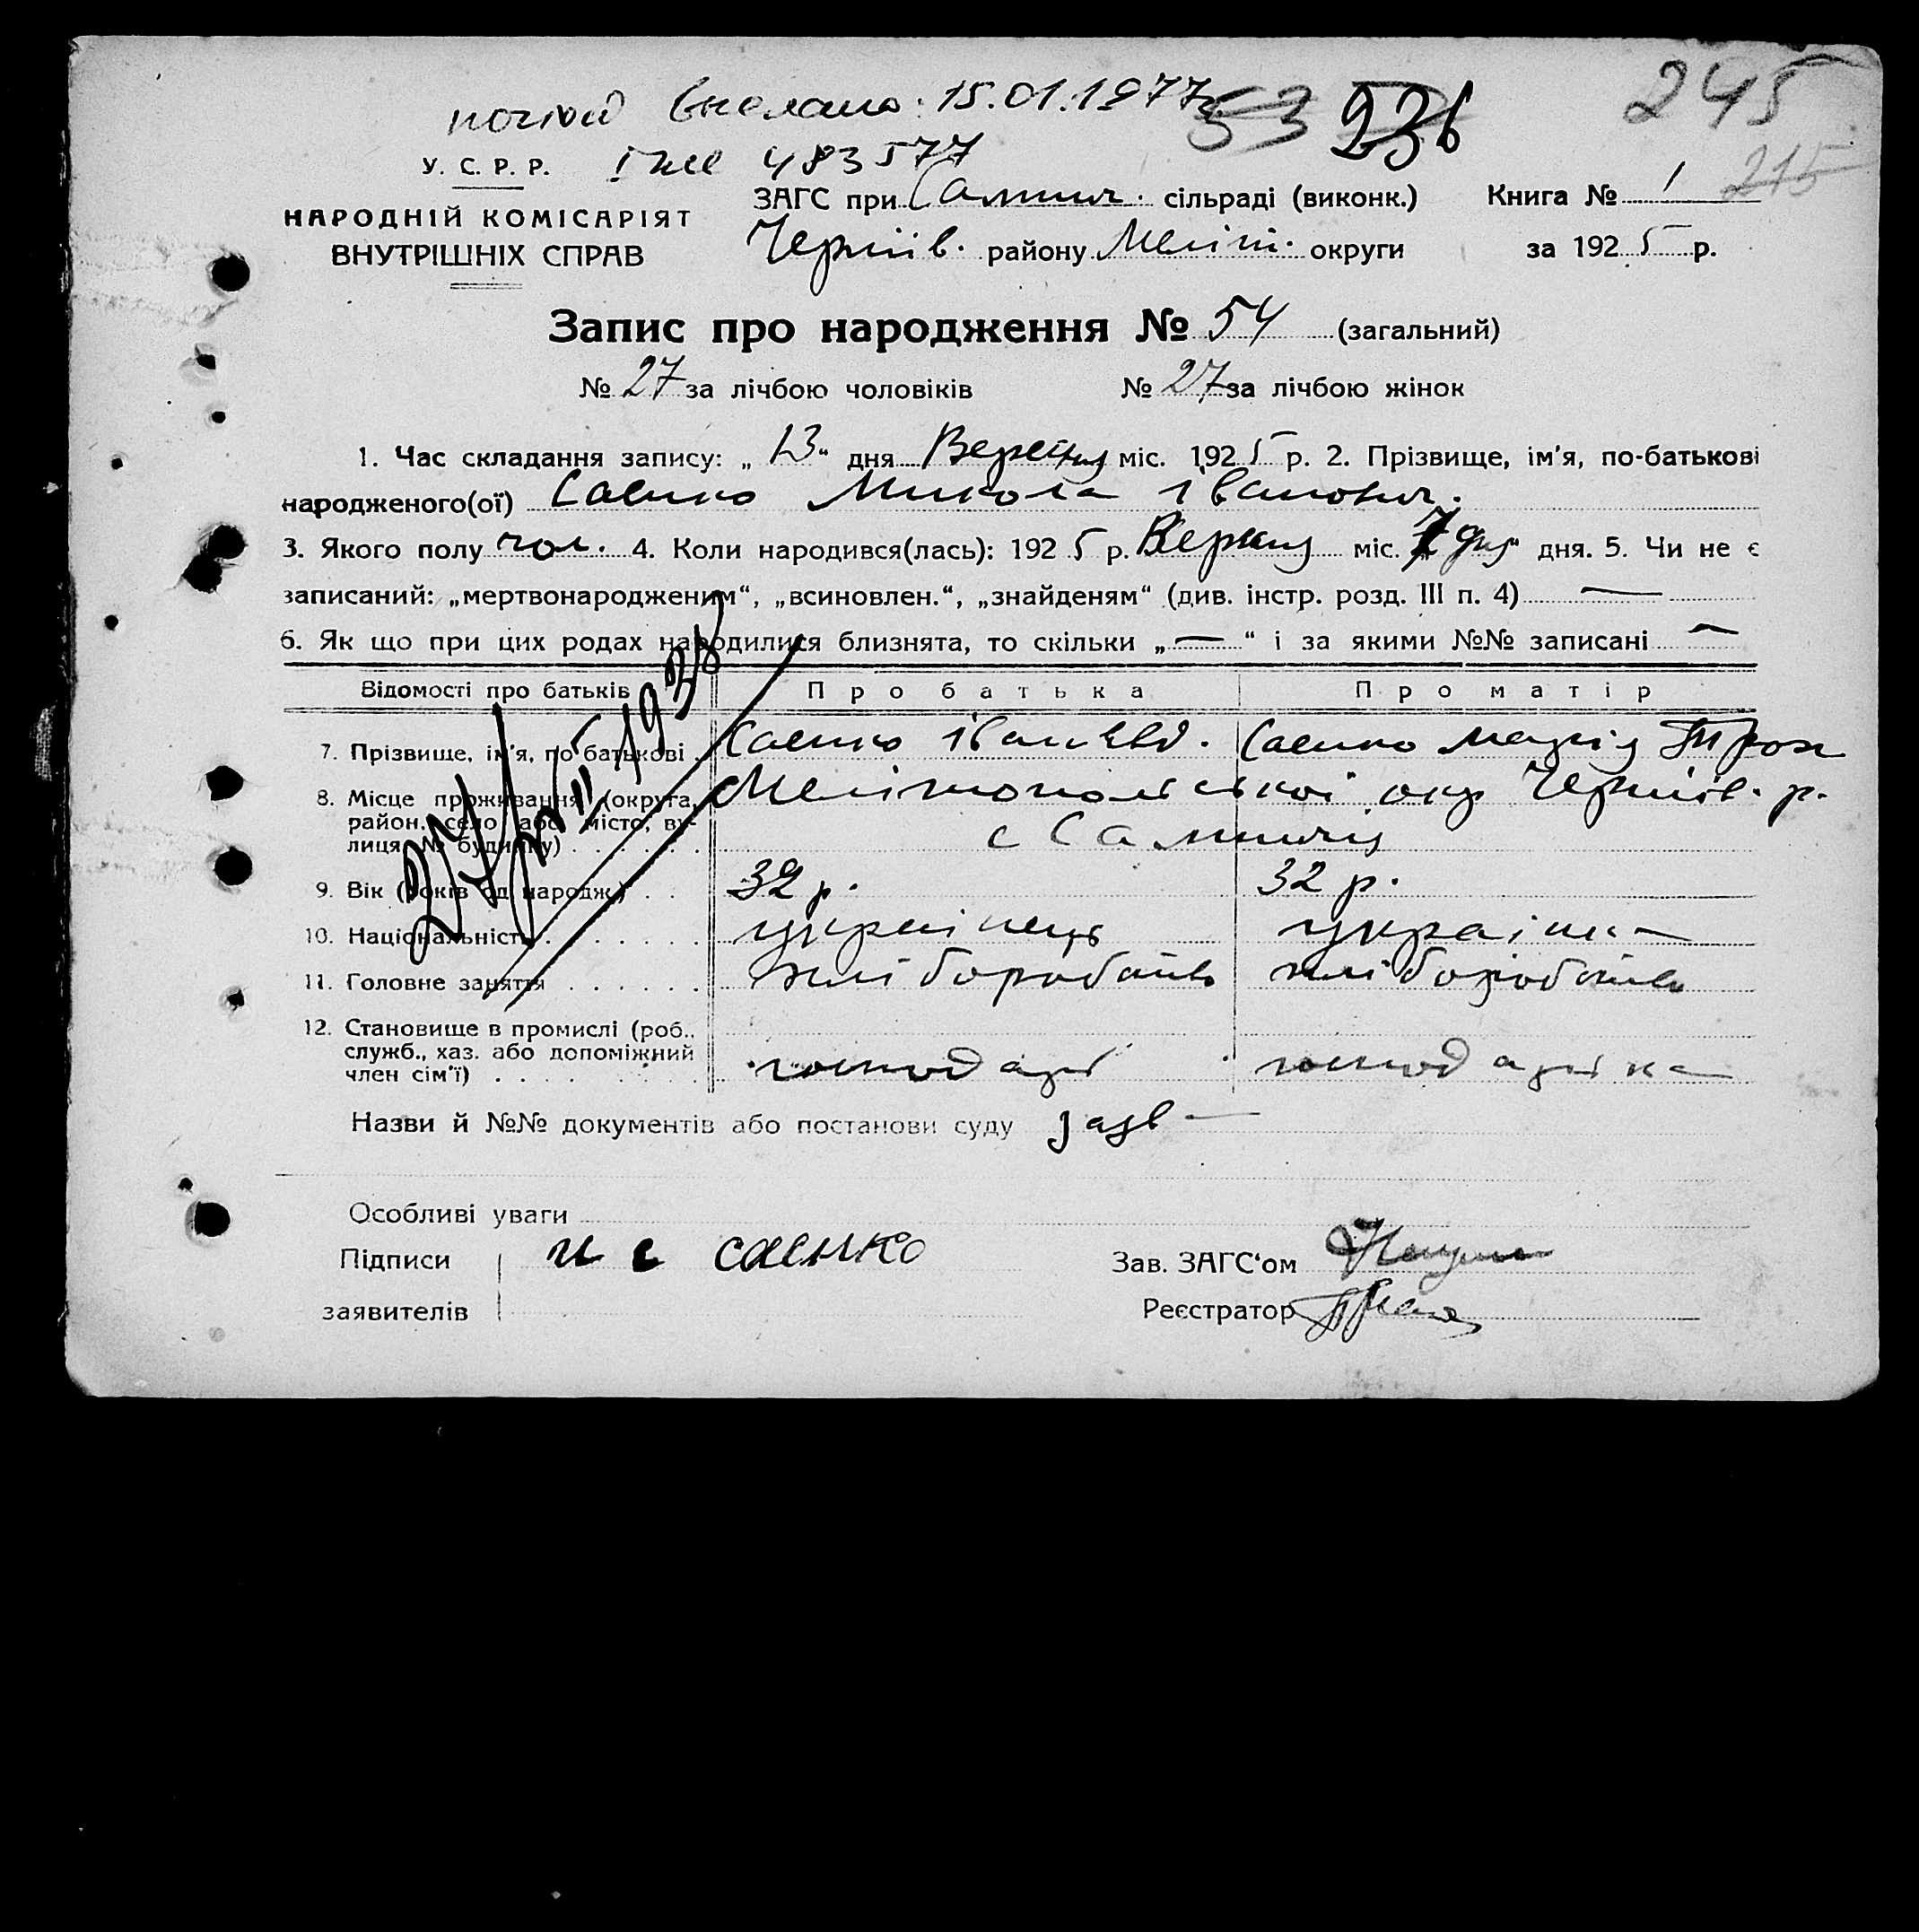 245
повтор выслано: 15.01.1977 53 236
У. С. Р. Р. 483577 215
НАРОДНІЙ КОМІСАРІЯТ
ВНУТРІШНІХ СПРАВ
ЗАГС при сільраді (виконк.) Книга № 1
Черніів. району Меліт. округи за 1925 р.
Запис про народження № 54 (загальний)
№ 27 за лічбою чоловіків № 27 за лічбою жінок
1. Час складання запису: „ 13 “ дня Вересня міс. 1925 р. 2. Прізвище, ім'я, по-батькові
народженого(ої) Саенко Микола Іванович.
3. Якого полу чол. 4. Коли народився(лась): 1925 р. міс. „7 дня“ дня. 5. Чи не є
записаний: „мертвонародженим“, „всиновлен.“, „знайденям“ (див. інстр. розд. III п. 4) —
6. Як що при цих родах народилися близнята, то скільки „—“ і за якими №№ записані —
Відомості про батьків Про батька Про матір
7. Прізвище, ім'я, по батькові . Саенко Іван Евд. Саенко Марія Трох
8. Місце проживання (округа, Мелітопольської окр Черніів. р.
район, село або місто, ву-
лиця, № будинку) . . . . . . с
9. Вік (років од народж.) . . 32 р. 32 р.
10. Національність . . . . . . . українець україн-
11. Головне заняття . . . . . . хліборобств хліборобств
12. Становище в промислі (роб.,
служб., хаз. або допоміжний
член сім'ї) . . . . . . . . . господарь господарька
Назви й №№ документів або постанови суду заяв —
Особливі уваги
Підписи и е саенко Зав. ЗАГС‘ом
заявителів Реєстратор